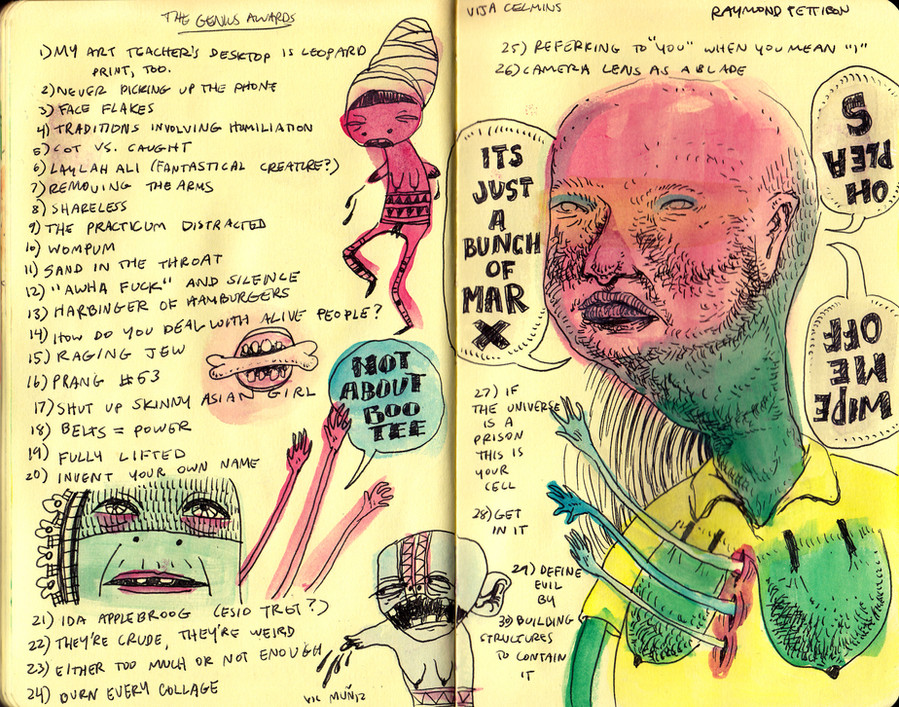 THE GENIUS AWARDS
1) MY ART TEACHER'S DESKTOP IS LEOPARD
PRINT, TOO.
2) NEVER PICKING UP THE PHONE
3) FACE FLAKES
4) TRADITIONS INVOLVING HUMILIATION
5) COT VS. CAUGHT
6) LAYLAH ALI (FANTASTICAL CREATURE?)
7) REMOVING THE ARMS
8) SHARELESS
9) THE PRACTICUM DISTRACTED
10) WOMPUM
11) SAND IN THE THROAT
12) "AWHA FUCK" AND SILENCE
13) HARBINGER OF HAMBURGERS
14) HOW DO YOU DEAL WITH ALIVE PEOPLE?
15) RAGING JEW
16) PRANG #63
17) SHUT UP SKINNY ASIAN GIRL
18) BELTS = POWER
19) FULLY LIFTED
20) INVENT YOUR OWN NAME
NOT
ABOUT
BOO
TEE
21) IDA APPLEBROOG (ESIO TROT?)
22) THEY'RE CRUDE, THEY'RE WEIRD
23) EITHER TOO MUCH OR NOT ENOUGH
24) BURN EVERY COLLAGE
VIK MUÑIZ
VIJA CELMINS
RAYMOND PETTIBON
25) REFERRING TO "YOU" WHEN YOU MEAN "I"
26) CAMERA LENS AS A BLADE
ITS
JUST
A
BUNCH
OF
MAR
X
OH
PLEA
S
WIPE
ME
OFF
27) IF
THE UNIVERSE
IS A
PRISON
THIS IS
YOUR
CELL
28) GET
IN IT
29) DEFINE
EVIL
BY
30) BUILDING
STRUCTURES
TO CONTAIN
IT